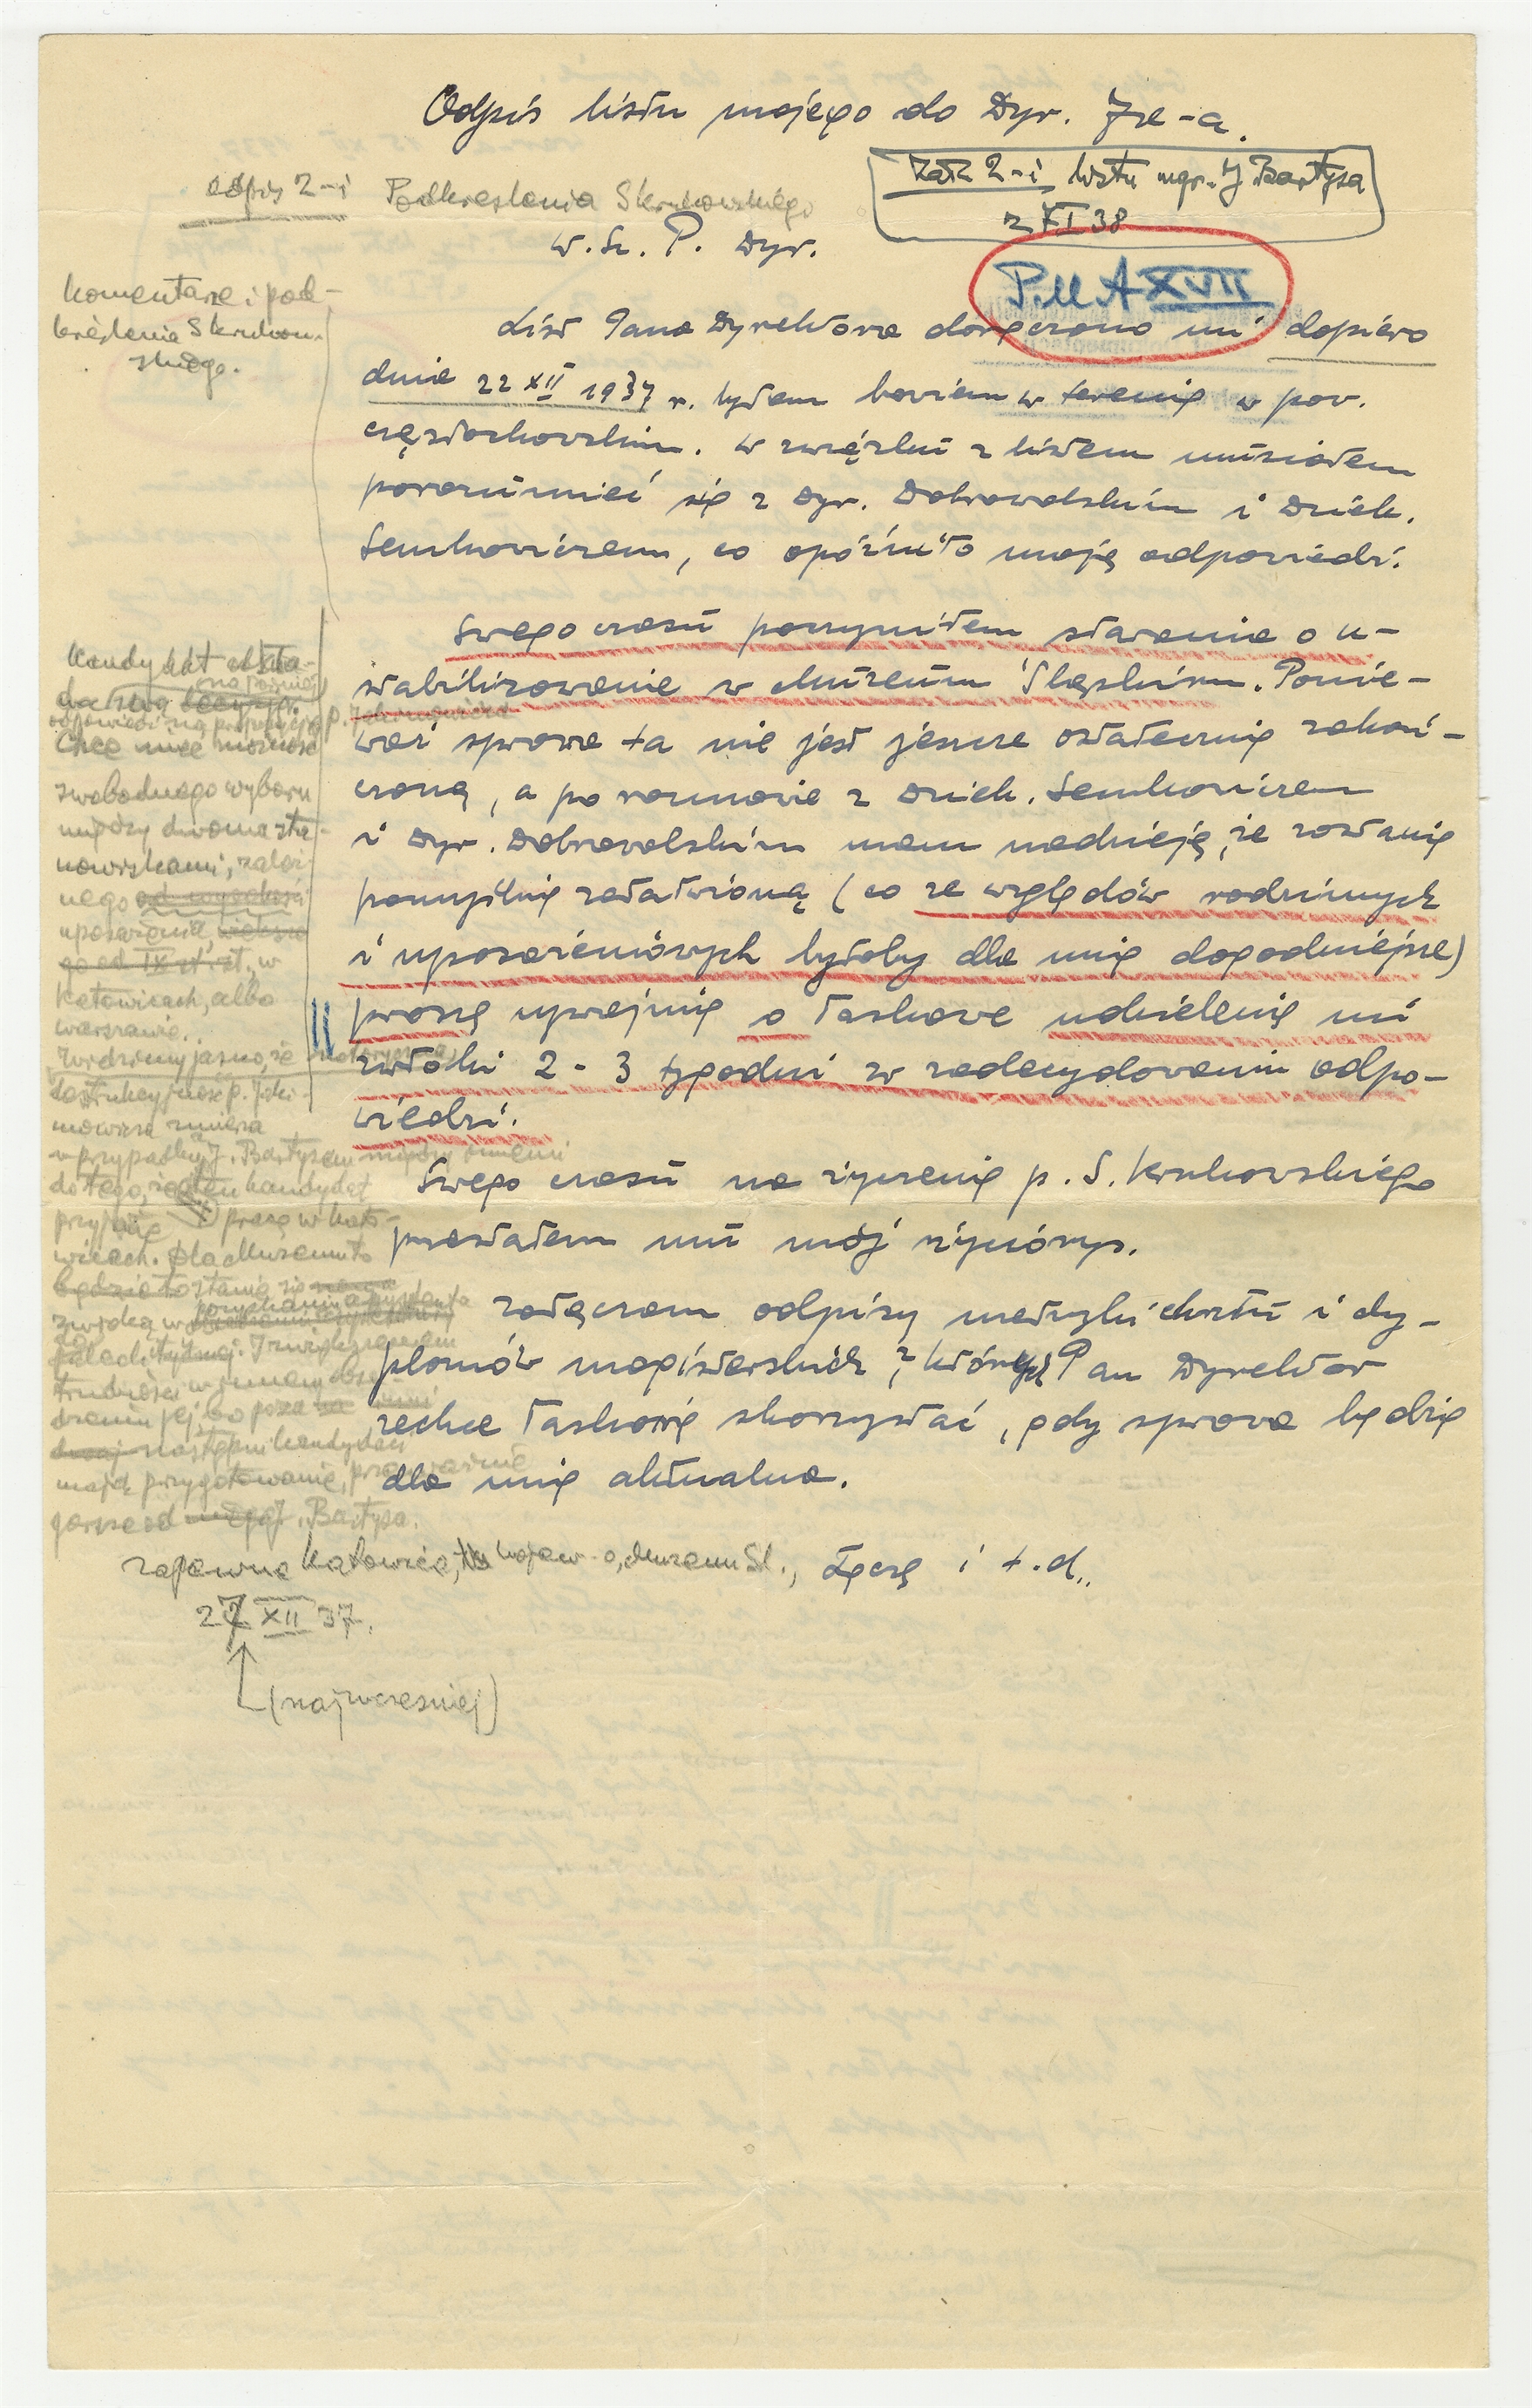 Odpis listu mojego do Dyr. Je-a.
odpis 2-i
Podkreślenia S Krukowskiego
Zał 2-i listu mgr. J Bartysa
z XI 38
W. Sz. P. Dyr.
P.M A XVII
komentarze i pod-
kreślenia S Krukow-
skiego.
List Pana Dyrektora doręczono mi dopiero
dnia 22 XII 1937 r. byłem bowiem w terenie w pow.
częstochowskim. W związku z listem musiałem
porozumieć się z Dyr. Dobrowolskim i Dziek.
Semkowiczem, co opóźniło moją odpowiedź.
Swego czasu poczyniłem starania o u-
stabilizowanie w Muzeum Śląskim. Ponie-
waż sprawa ta nie jest jeszcze ostatecznie zakoń-
czoną, a po rozmowie z Dziek. Semkowiczem
i Dyr. Dobrowolskim mam nadzieję, że zostanie
pomyślnie załatwioną (co ze względów rodzinnych
i uposażeniowych byłoby dla mnie dogodniejsze)
proszę uprzejmie o łaskawe udzielenie mi
zwłoki 2-3 tygodni w zadecydowaniu odpo-
wiedzi.
Swego czasu na życzenie p. S. Krukowskiego
przesłałem mu mój życiorys.
Załączam odpisy metryki chrztu i dy-
plomów magisterskich, z których Pan Dyrektor
zechce łaskawie skorzystać, gdy sprawa będzie
dla mnie aktualna.
Łączę i t.d..
Kandydat odkła-
da swą decyzję.
na później
odpowiedź na propozycję p. Jakimowicza
Chce mieć możność
swobodnego wyboru
między dwoma sta-
nowiskami, zależ-
nego od wysokości
uposażenia,
go od IX st. sł., w
Katowicach, albo
Warszawie.
Widzimy jasno, że
destrukcyjność p. Jaki-
mowicza zmierza
w przypadku J. Bartysem między innemi
do tego, żeby ten kandydat
przyjął pracę w Kato-
wicach. Dla Muzeum to
będzie to stanie się
zwłoką w pozyskaniu asystenta
i zwiększeniem
trudności
dzeniu jej, bo poza
następni kandydaci
mają przygotowanie,
gorsze od J. Bartysa.
zapewne Katowice, Wojew-o, Muzeum Śl.,
27 XII 37.
(najwcześniej)